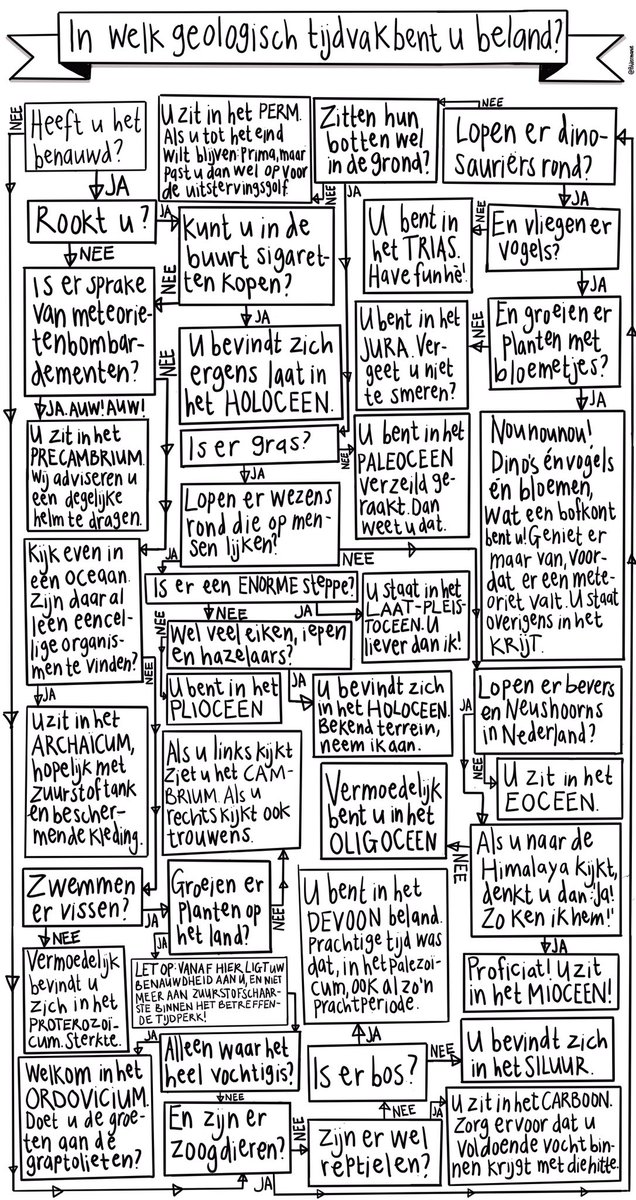 In welk geologisch tijdvak bent u beland?
@fidermans
NEE
Heeft u het
benauwd?
JA
U zit in het PERM.
Als u tot het eind
wilt blijven: Prima, maar
past u dan wel op voor
de uitstervingsgolf.
Zitten hun
botten wel
in de grond?
NEE
JA
NEE
Lopen er dino-
sauriërs rond?
JA
Rookt u?
JA
NEE
Kunt u in de
buurt sigaret-
ten kopen?
NEE
JA
U bent in
het TRIAS.
Have fun hè!
NEE
En vliegen er
vogels?
JA
Is er sprake
van meteorie-
tenbombar-
dementen?
NEE
JA. AUW! AUW!
U bevindt zich
ergens laat in
het HOLOCEEN.
U bent in het
JURA. Ver-
geet u niet
te smeren?
NEE
En groeien er
planten met
bloemetjes?
JA
U zit in het
PRECAMBRIUM.
Wij adviseren u
een degelijke
helm te dragen.
Is er gras?
NEE
JA
U bent in het
PALEOCEEN
verzeild ge-
raakt. Dan
weet u dat.
Nounounou!
Dino's én vogels
én bloemen,
wat een bofkont
bent u! Geniet er
maar van, voor-
dat er een mete-
oriet valt. U staat
overigens in het
KRIJT.
Lopen er wezens
rond die op men-
sen lijken?
JA
NEE
Kijk even in
een oceaan.
Zijn daar al
leen eencel-
lige organis-
men te vinden?
NEE
JA
Is er een ENORME steppe?
NEE
JA
U staat in het
LAAT-PLEIS-
TOCEEN. U
liever dan ik!
NEE
Wel veel eiken, iepen
en hazelaars?
JA
U bent in het
PLIOCEEN
U bevindt zich
in het HOLOCEEN.
Bekend terrein,
neem ik aan.
JA
Lopen er bevers
en Neushoorns
in Nederland?
NEE
U zit in het
EOCEEN.
U zit in het
ARCHAÏCUM,
hopelijk met
zuurstoftank
en bescher-
mende kleding.
Als u links kijkt
ziet u het CAM-
BRIUM. Als u
rechts kijkt ook
trouwens.
Vermoedelijk
bent u in het
OLIGOCEEN
NEE
Als u naar de
Himalaya kijkt,
denkt u dan: 'Ja!
Zo ken ik hem!'
JA
Proficiat! U zit
in het MIOCEEN!
Zwemmen
er vissen?
JA
NEE
Groeien er
planten op
het land?
NEE
JA
U bent in het
DEVOON beland.
Prachtige tijd was
dat, in het Palezoï-
cum, ook al zo'n
prachtperiode.
JA
Vermoedelijk
bevindt u
zich in het
PROTEROZOÏ-
CUM. Sterkte.
LET OP: VANAF HIER LIGT UW
BENAUWDHEID AAN U, EN NIET
MEER AAN ZUURSTOFSCHAAR-
STE BINNEN HET BETREFFEN-
DE TIJDPERK!
Alleen waar het
heel vochtig is?
JA
NEE
Is er bos?
NEE
U bevindt zich
in het SILUUR.
Welkom in het
ORDOVICIUM.
Doet u de groe-
ten aan de
graptolieten?
En zijn er
zoogdieren?
NEE
JA
Zijn er wel
reptielen?
NEE
JA
U zit in het CARBOON.
Zorg ervoor dat u
voldoende vocht bin-
nen krijgt met die hitte.